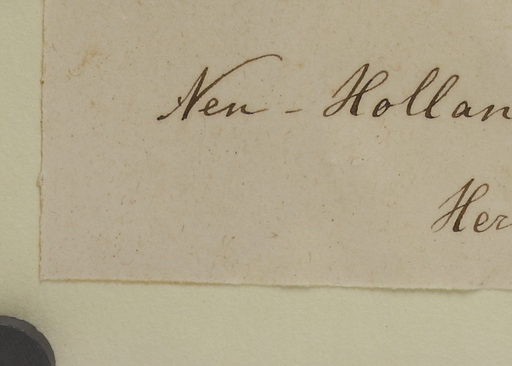 Neu - Hollan
Her